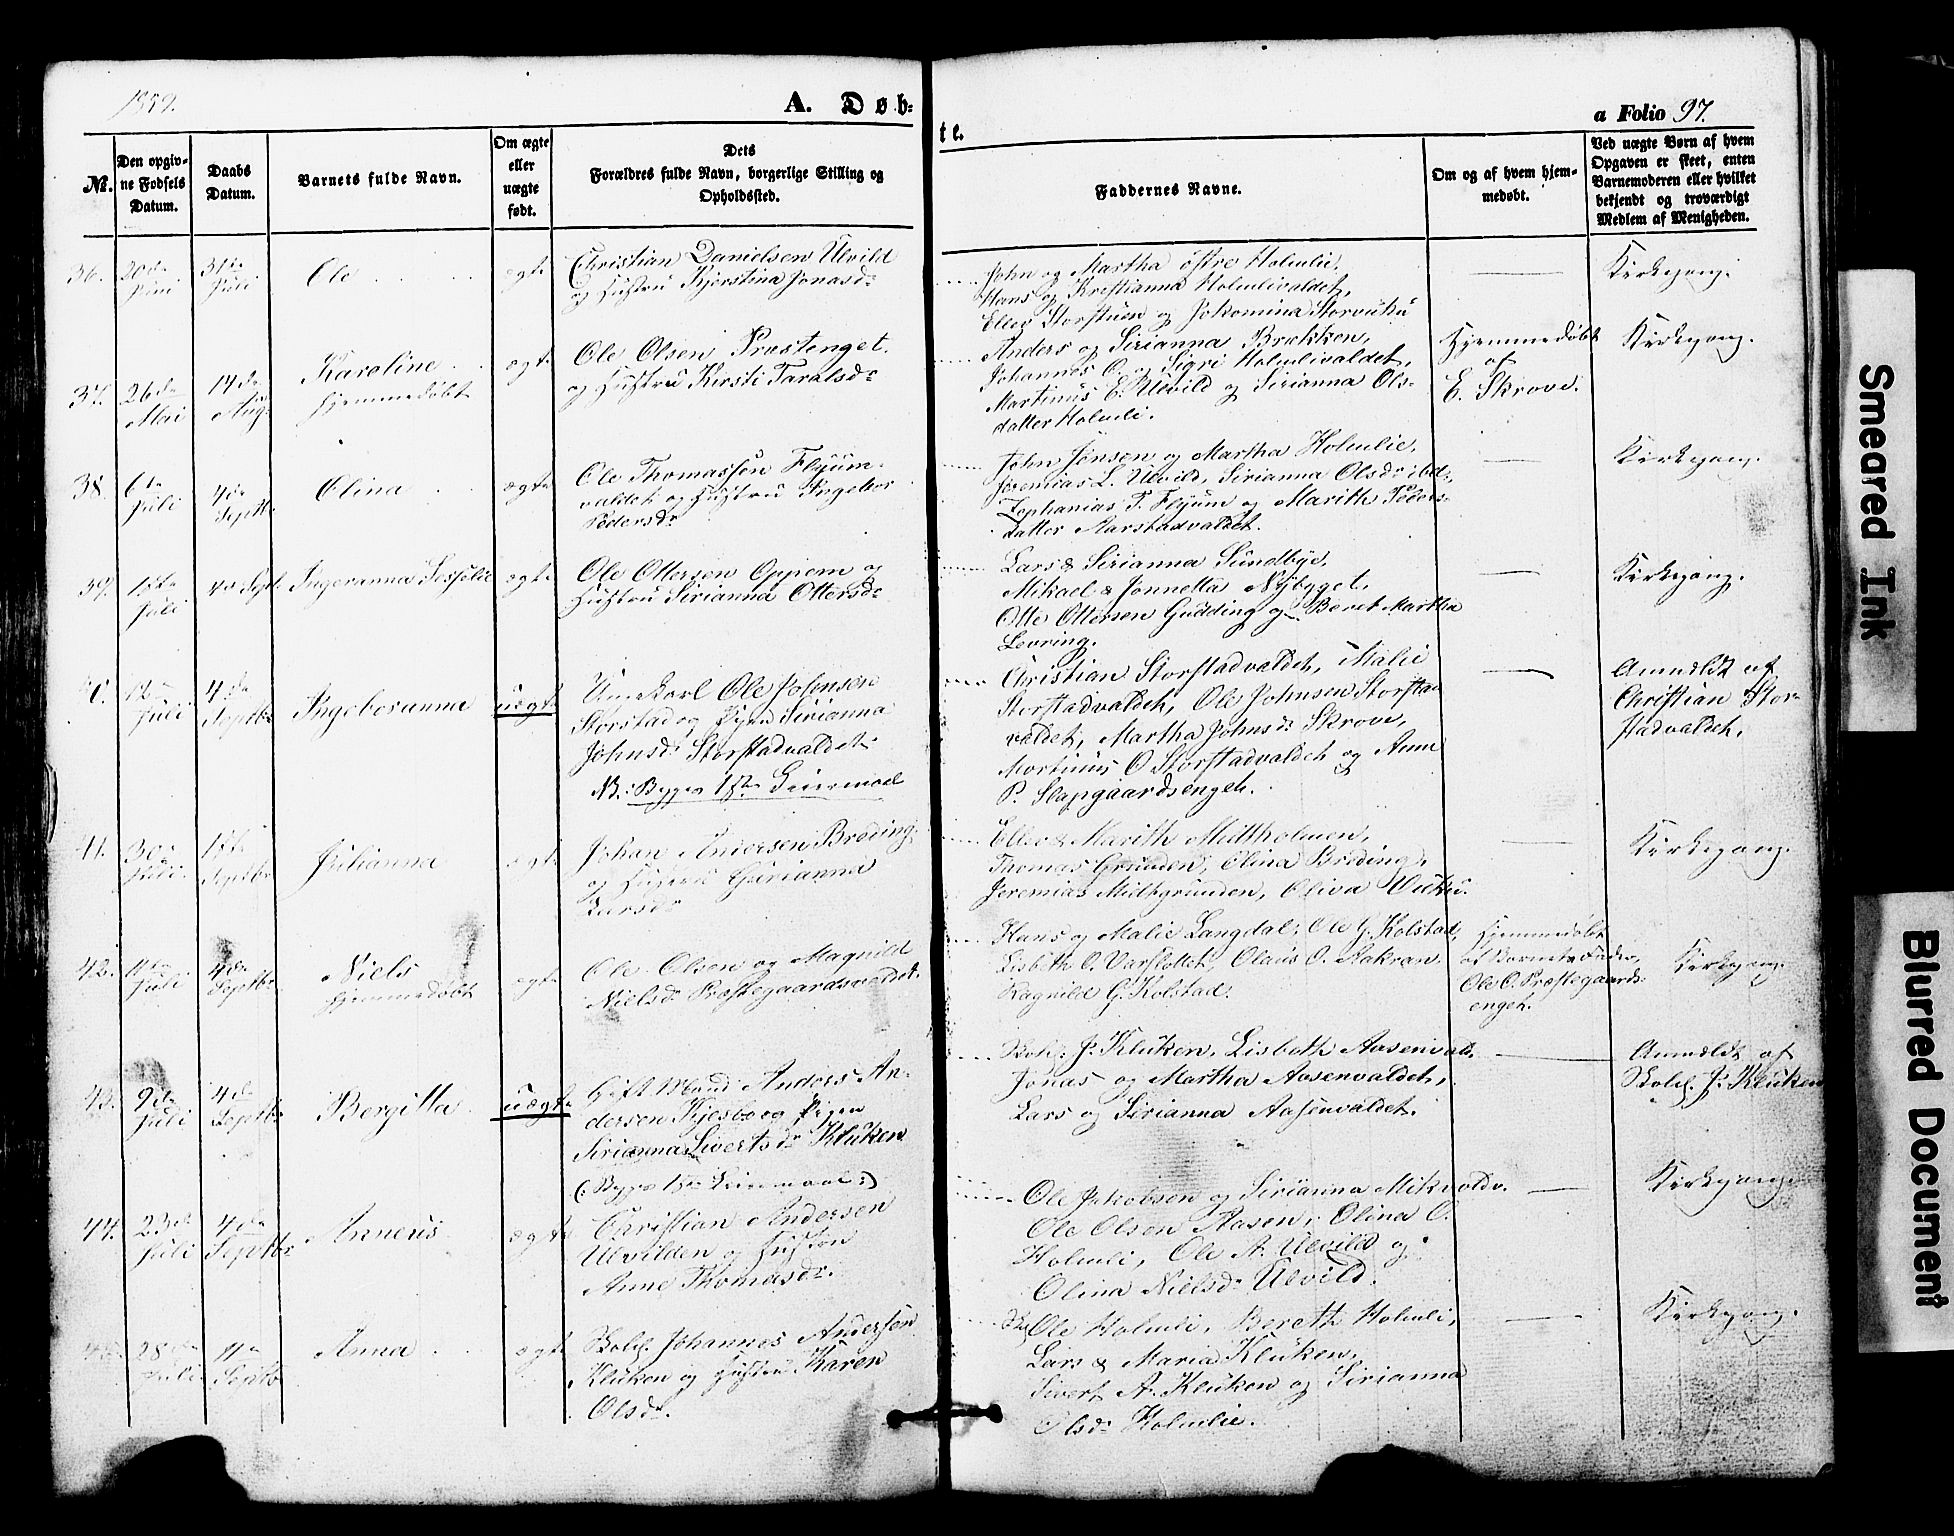 1859.
A. Døb-
te.
a Folio 97.
No.
Den opgiv-
ne Fødsels
Datum.
Daabs
Datum.
Barnets fulde Navn.
Om ægte
eller
uægte
født.
Dets
Forældres fulde Navn, borgerlige Stilling og
Opholdssted.
Faddernes Navne.
Om og af hvem hjem-
medøbt.
Ved uægte Børn af hvem
Opgaven er skeet, enten
Barnemoderen eller hvilket
bekjendt og troværdigt
Medlem af Menigheden.
36. 20de Juni
31te Juli
Ole
ægte
Christian Danielsen Ulvild
og Hustru Kjerstina Jonasdr
John og Martha østre Holmlie,
Hans og Kristianna Holmlivaldet,
Ellev Storstuen og Jokomina Storvuku
Kirkegang.
37. 26de Mai
14de Aug.
Karoline
hjemmedøbt
ægte
Ole Olsen Præstenget
og Hustru Kirsti Taraldsdr
Anders og Sirianna Brækken,
Johannes O. og Sigri Holmlivaldet,
Martinus E. Ulvild og Sirianna Ols-
datter Holmli.
Hjemmedøbt
af
E. Skrove.
Kirkegang.
38. 6te Juli
4de Septbr
Olina
ægte
Ole Thomassen Flyum-
valdet og Hustru Ingebor
Pedersdr
John Jensen og Martha Holmlie,
Jeremias L. Ulvild, Sirianna Olsdr ibd,
Zephanias T. Flyum og Marith Peders-
datter Aarstadvaldet.
Kirkegang.
39. Juli
4de Sept.
Ingeranna Sesselie
ægte
Ole Ottersen Oppem og
Hustru Sirianna Ottersdr
Lars & Sirianna Sundbye,
Mikael & Jonnetta Nybyget,
Otte Ottersen Gudding og Beret Martha
Levring.
Kirkegang.
40. Juli
4de Septbr
Ingeboranna
uægte
Ungkarl Ole Johnsen
Storstad og Pigen Sirianna
Johnsdr Storstadvaldet
NB: Begges 1ste Leiermaal
Christian Storstadvaldet, Malie
Storstadvaldet, Ole Johnsen Storstad-
valdet, Martha Johnsdr Skrove,
Martinus O Storstadvaldet og Anne
P. Slapgaardsenget.
Anmeldt af
Christian Stor-
stadvaldet.
41. 30te Juli
Septbr
Julianna
ægte
Johan Andersen Breding
og Hustru Gurianna
Larsdr
Ellev & Marith Midtholmen,
Thomas Grunden, Olina Breding,
Jeremias Midtgrunden, Oliva Vuku.
Kirkegang.
42. Juli
4de Septbr
Niels
hjemmedøbt
ægte
Ole Olsen og Magnild
Nielsdr Præstegaardsvaldet.
Hans og Malie Langdal, Ole G. Kolstad,
Lisbeth O. Varslottet, Olaus O. Aakran.
Ragnild G. Kolstad.
Hjemmedøbt
af Barnets Fader,
Ole O. Præstegaards-
enget.
Kirkegang.
43. 9de Juli
4de Septbr
Bergitta
uægte
Gift Mand Anders An-
dersen Kjesbo og Pigen
Sirianna Sivertsdr Kluken
(: Begges 1ste Leiermaal :)
Skol. J. Kluken, Lisbeth Aasenvald,
Jonas og Martha Aasenvaldet,
Lars og Sirianna Aasenvaldet.
Anmeldt af
Skol. J. Kluken
44. 23de Juli
4de Septbr
Anneus
ægte
Christian Andersen
Ulvilden og Hustru
Anne Thomasdr.
Ole Jakobsen og Sirianna Mikvoldv.
Ole Olsen Aasen, Olina O.
Holmli, Ole A. Ulvild og
Olina Nielsdr Ulvild.
Kirkegang.
45. 28de Juli
Septbr
Anna
ægte
Skol. Johannes Andersen
Kluken og Hustru Karen
Olsdr.
Ole Holmli, Bereth Holmli,
Lars & Maria Kluken,
Sivert A. Kluken og Sirianna
Olsdr Holmlie.
Kirkegang.
Smeared Ink
Blurred Document